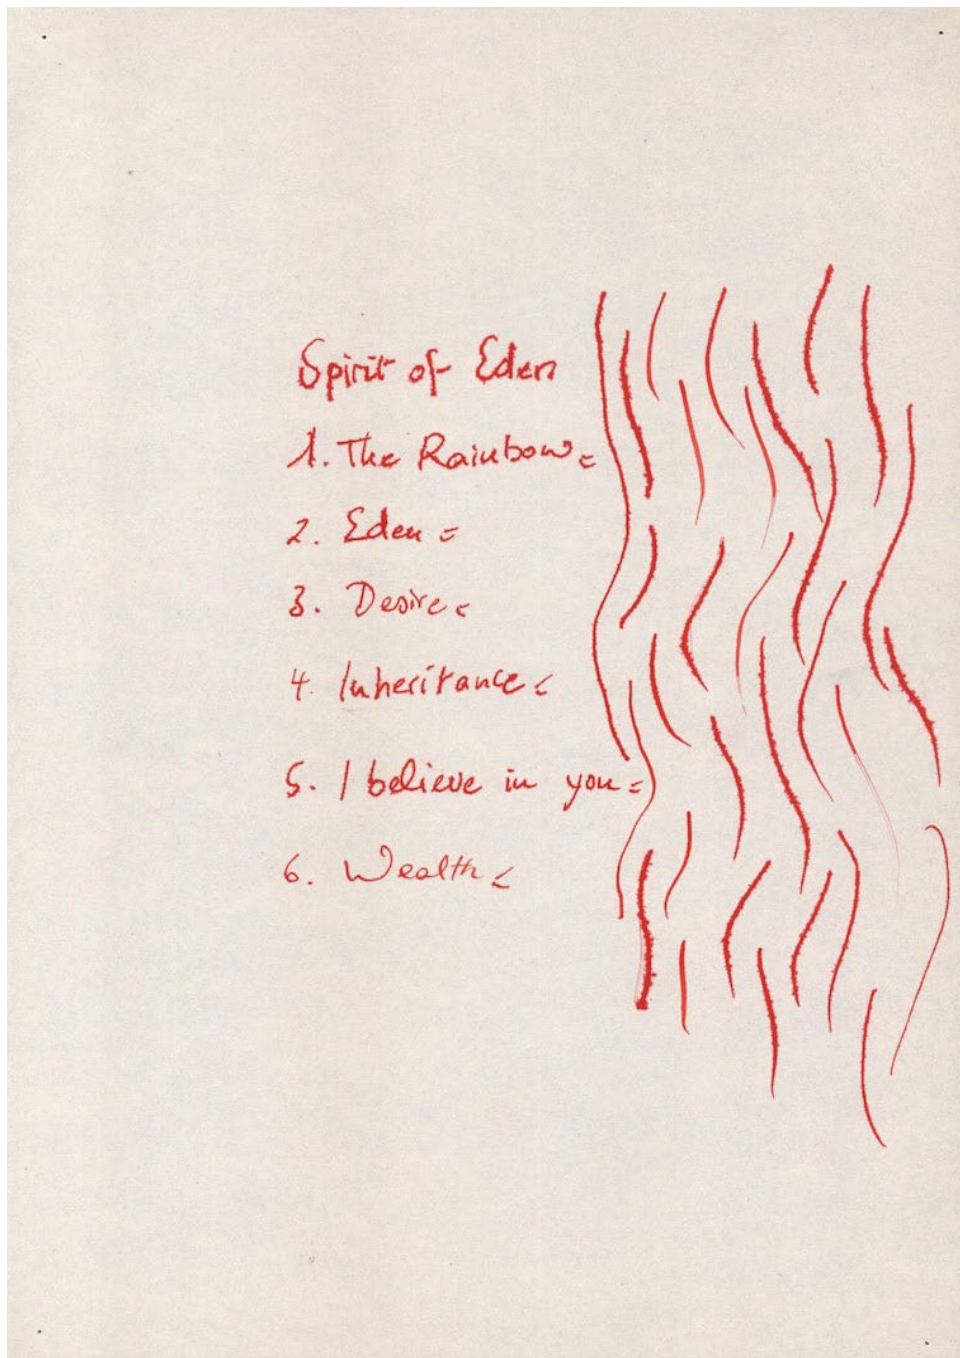 Spirit of Eden
1. The Rainbow =
2. Eden =
3. Desire =
4. Inheritance <
5. I believe in you =
6. Wealth <